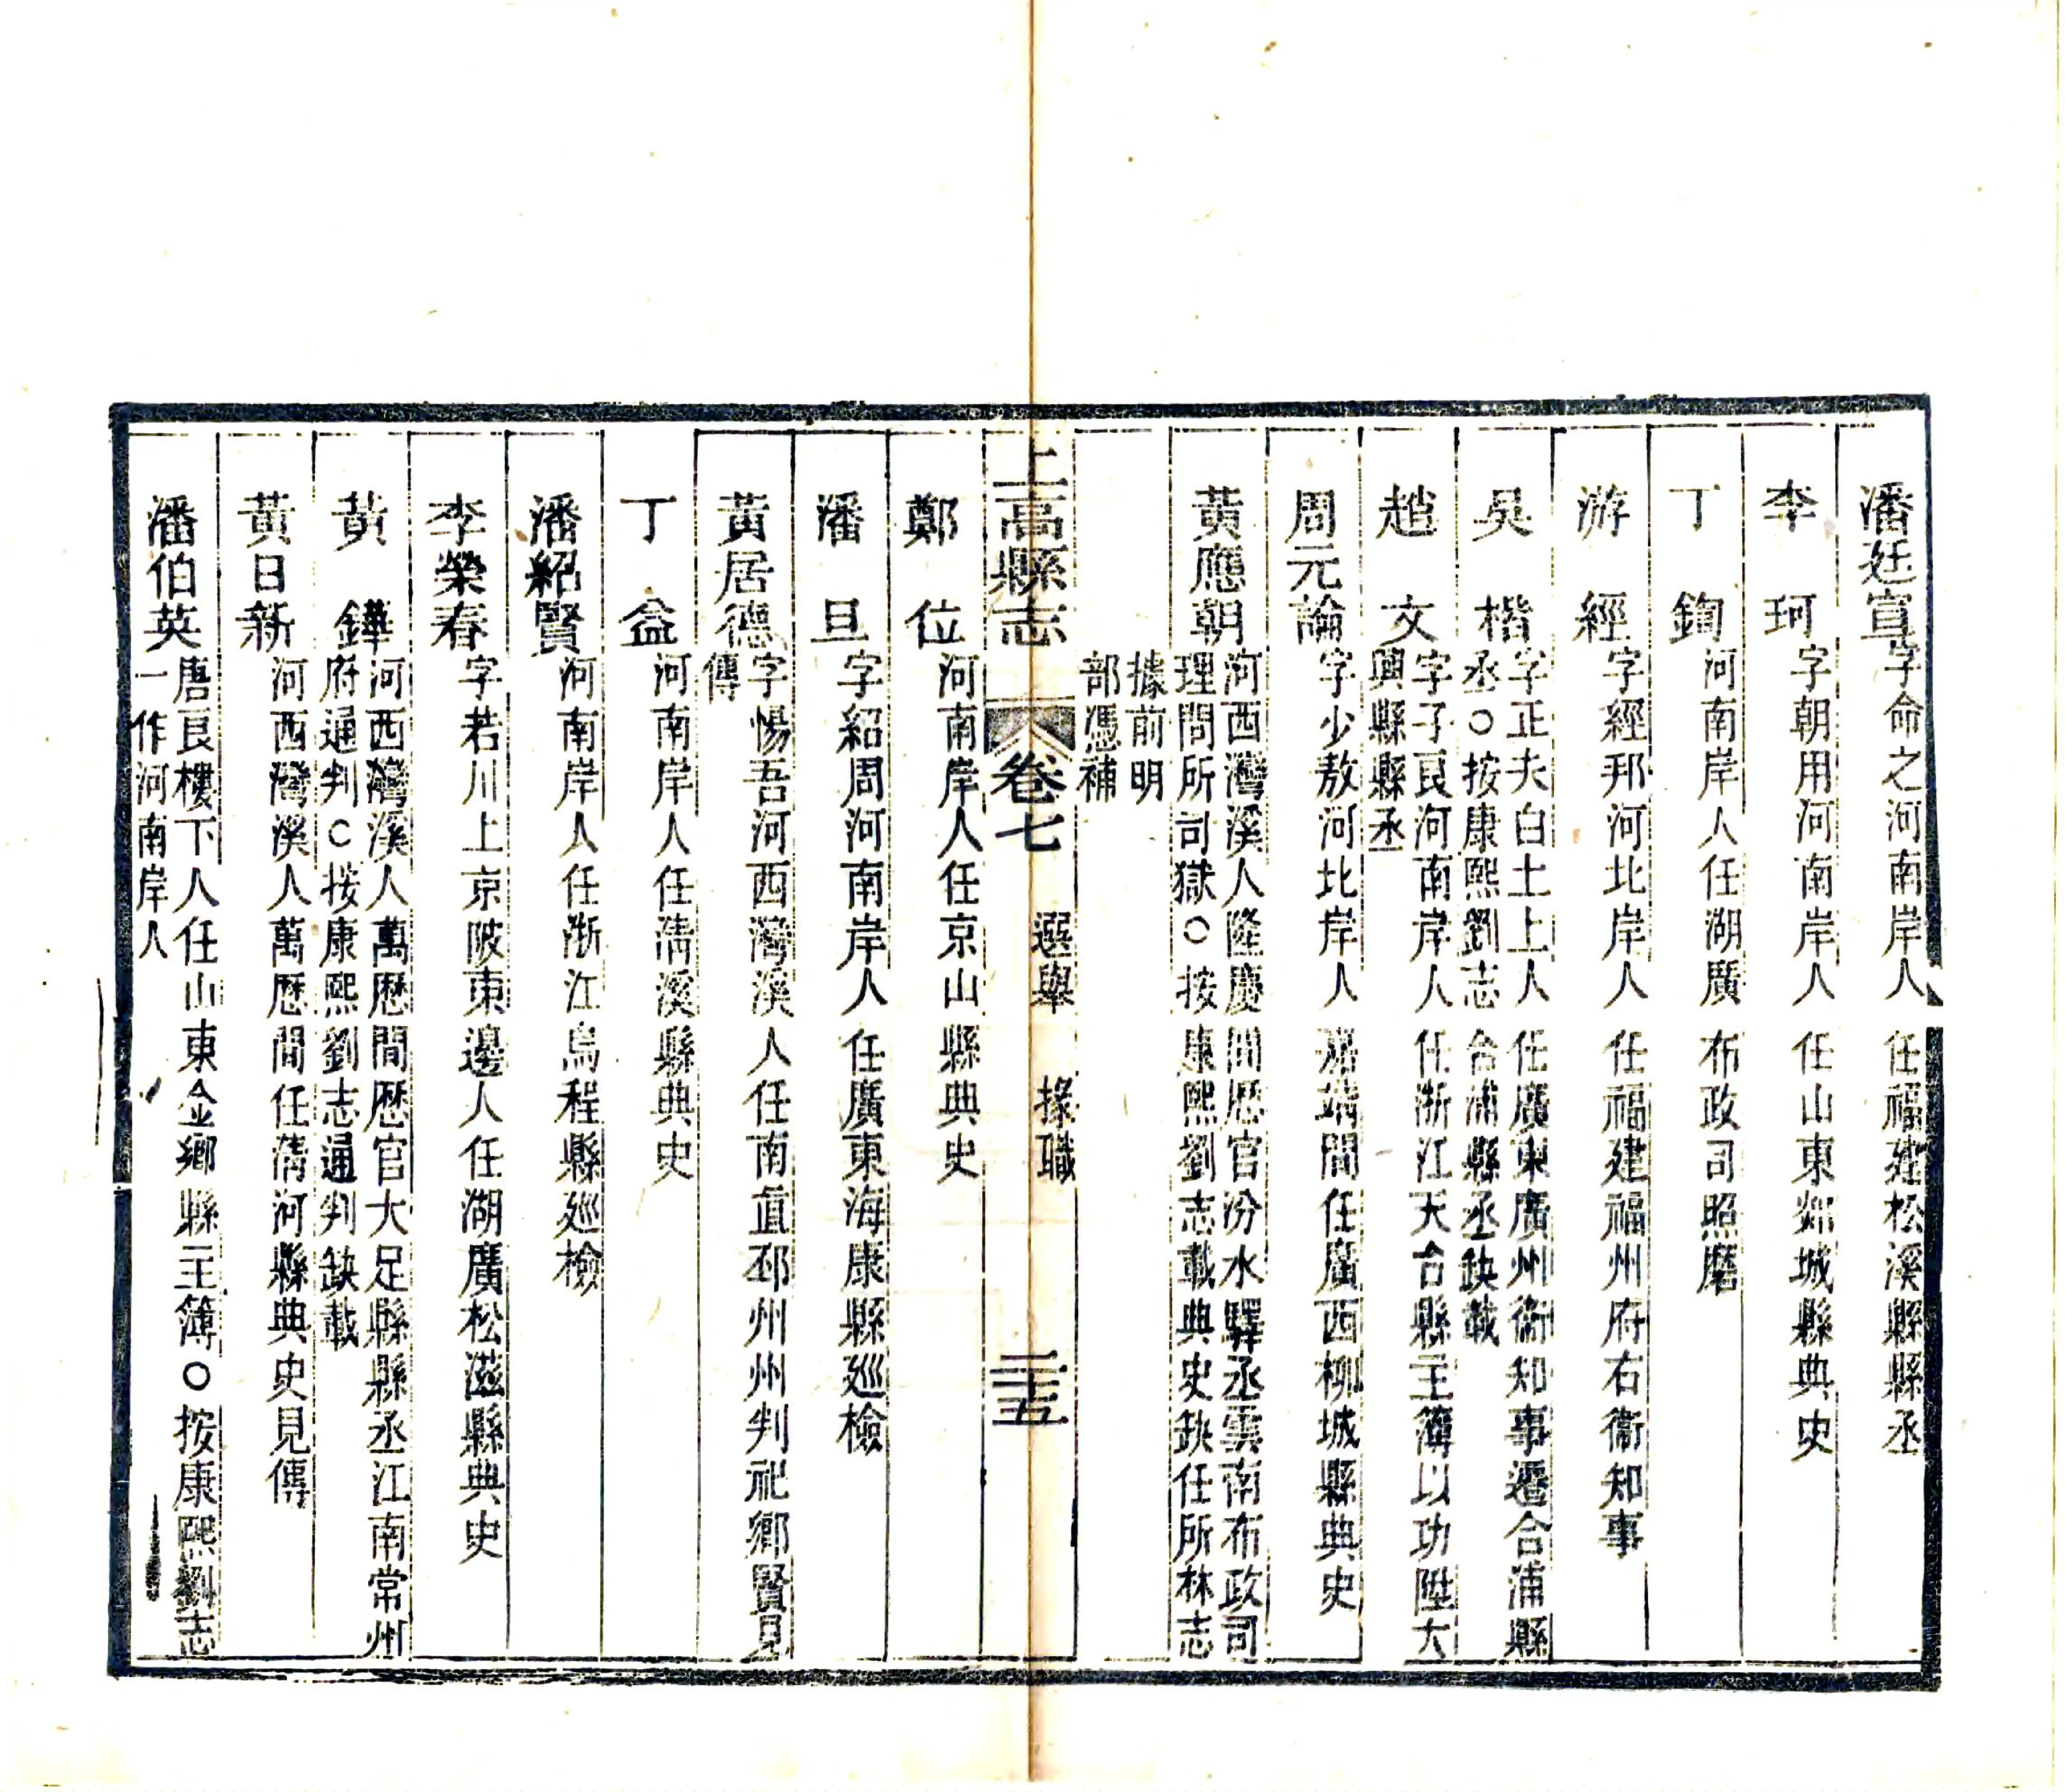 潘廷宣字命之河南岸人任福建松溪縣縣丞
李珂字朝用河南岸人任山東郯城縣典史
丁鋾河南岸人任湖廣布政司照磨
游經字經邦河北岸人任福建福州府右衞知事
吳楷字正夫白土上人任廣東廣州衞知事遷合浦縣
丞○按康熙劉志合浦縣丞缺載
趙文字子良河南岸人任浙江天台縣主簿以功陞大
興縣縣丞
周元論字少敖河北岸人嘉靖間任廣西柳城縣典史
黃應朝河西灣溪人隆慶間歷官汾水驛丞雲南布政司
理問所司獄○按康熙劉志載典史缺任所林志
據前明
部憑補
上高縣志卷七選舉掾職二十五
鄭位河南岸人任京山縣典史
潘旦字紹周河南岸人任廣東海康縣廵檢
黃居德字惕吾河西灣溪人任南直邳州州判祀鄉賢見
傳
丁益河南岸人任清溪縣典史
潘紹賢河南岸人任浙江烏程縣廵檢
李榮春字若川上京陂東邊人任湖廣松滋縣典史
黃鏵河西灣溪人萬歷間歷官大足縣縣丞江南常州
府通判○按康熙劉志通判缺載
黃日新河西灣溪人萬歷間任清河縣典史見傳
潘伯英唐良樓下人任山東金鄉縣主簿○按康熙劉志
一作河南岸人